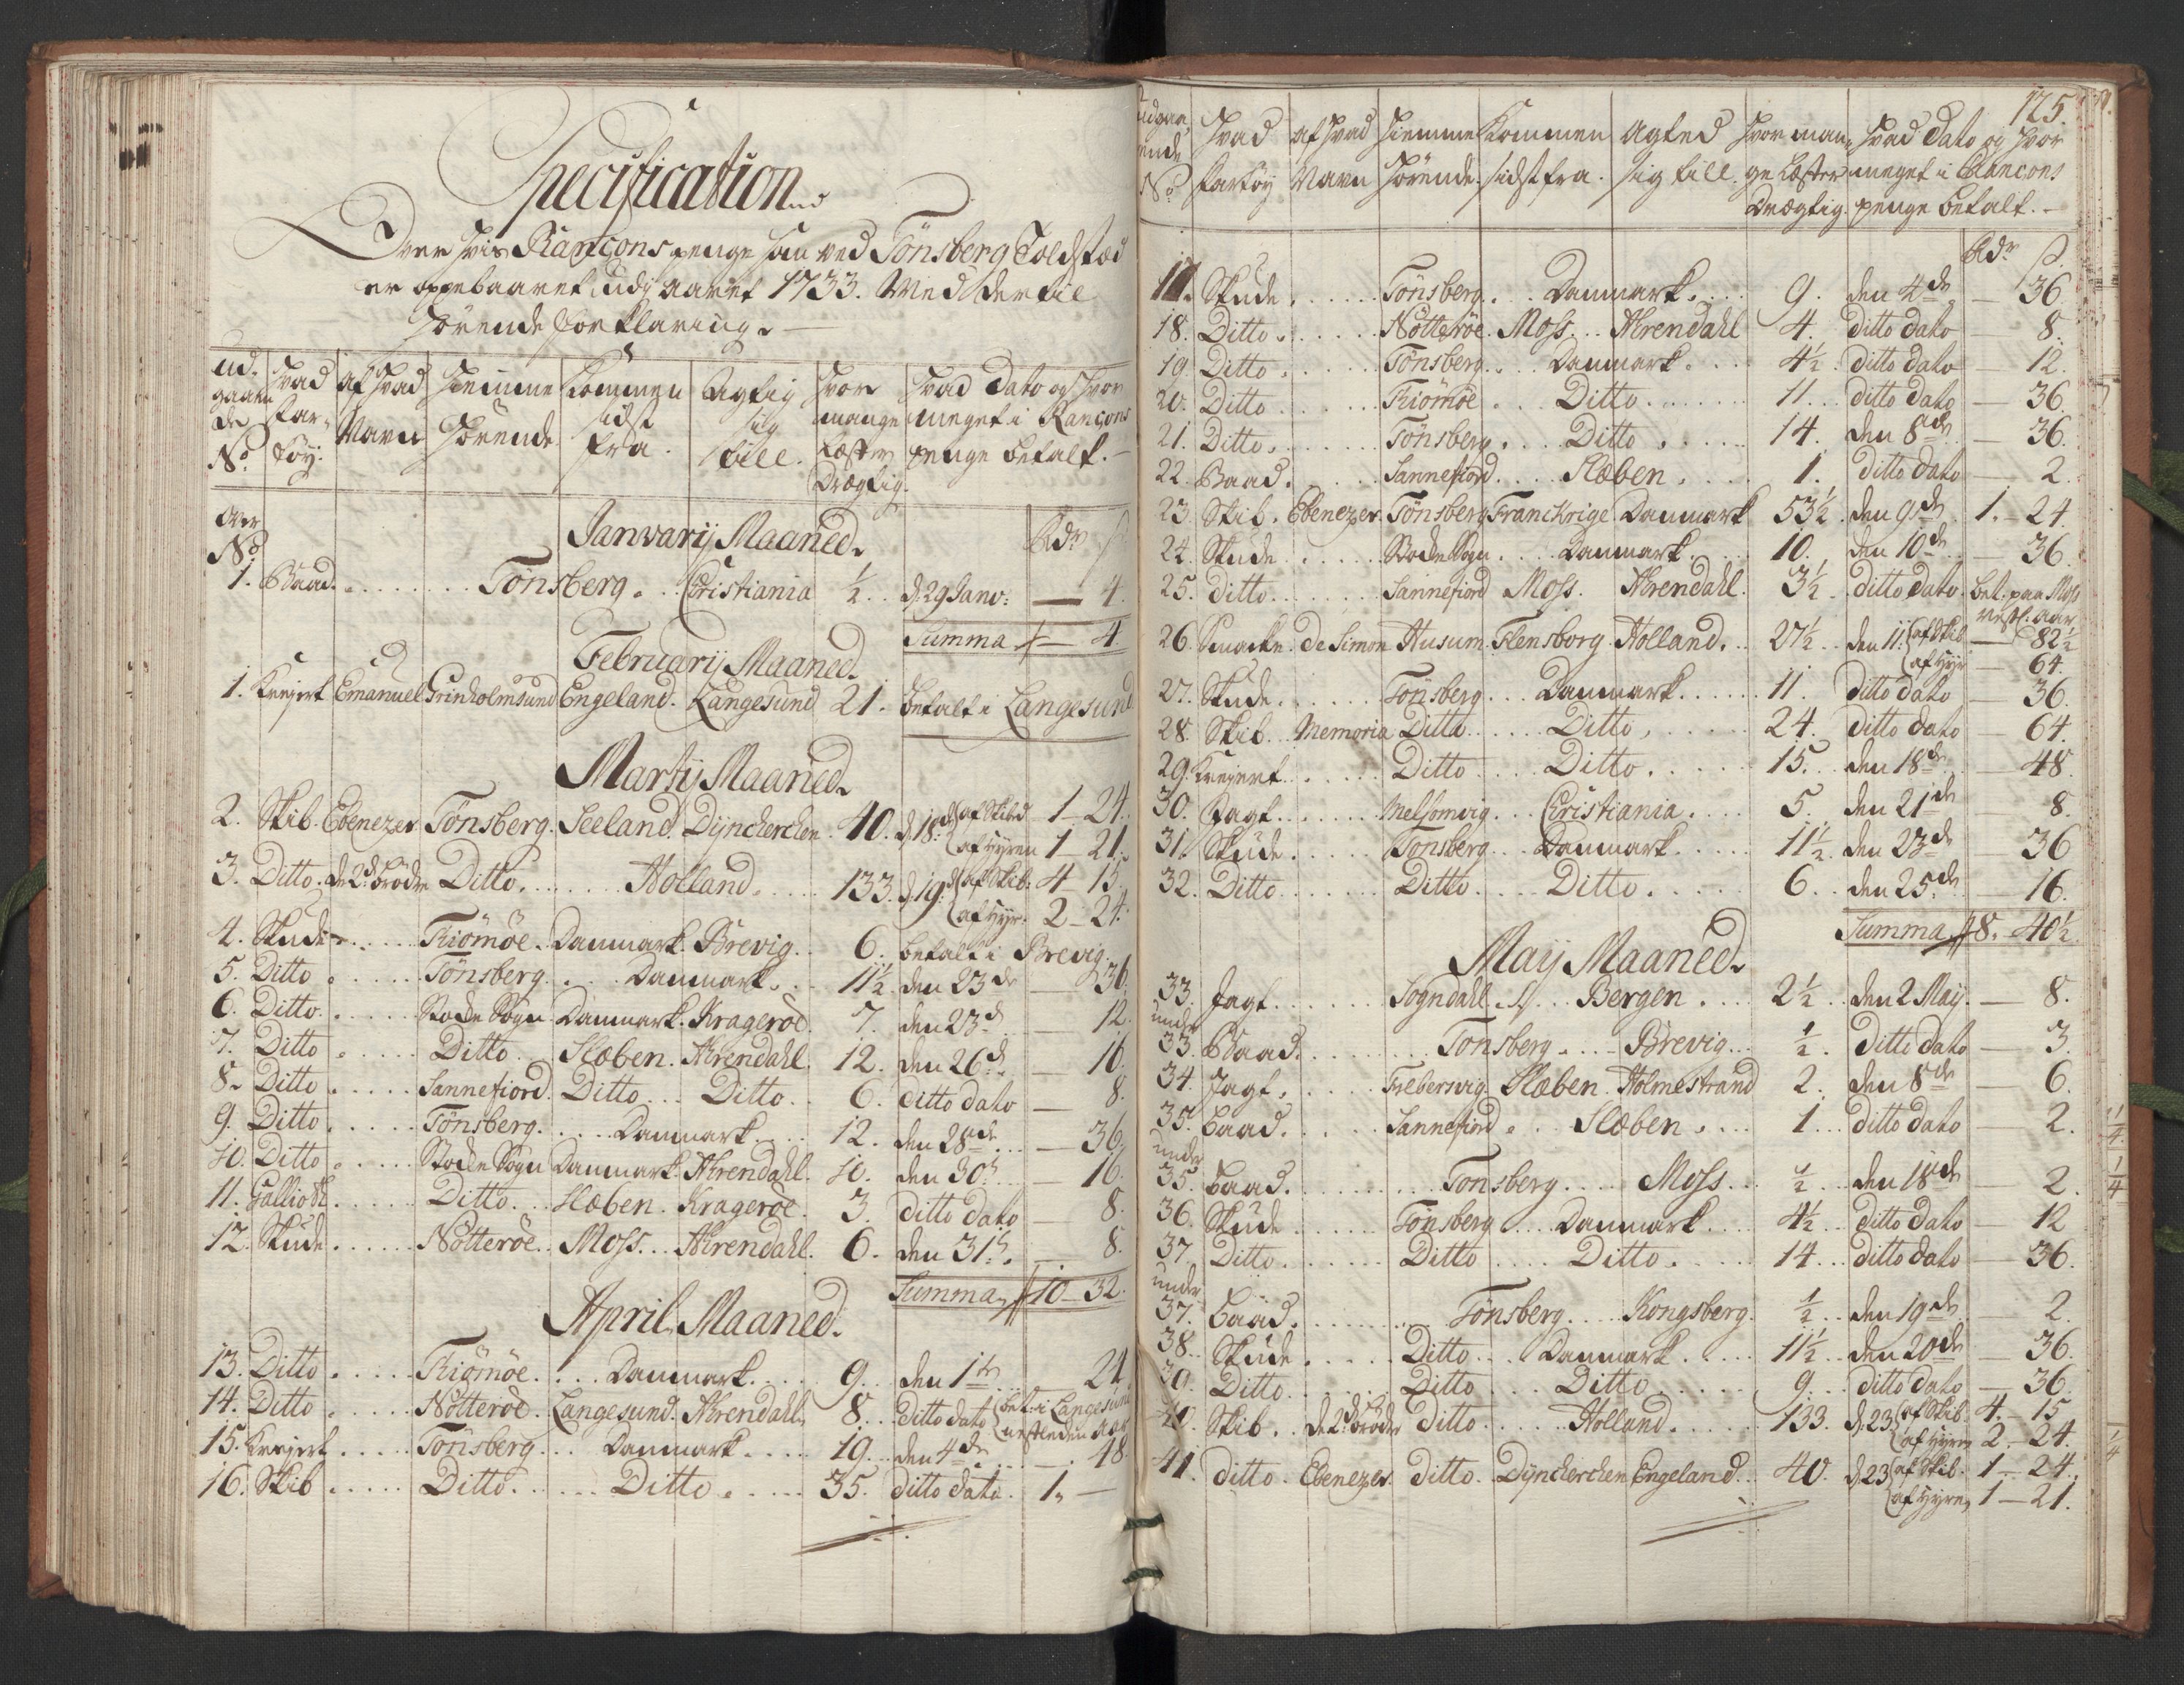 Specification
Over hvis Rançons penge som ved Tönsberg Toldstæd
er oppebaaret udj aaret 1733. Med dertil
hörende forklaring.
Ud-gaaende No. | Hvad Far-töy. | Af hvad Navn | Hiemme Hörende | Kommen sidst fra. | Agtig sig till. | Hvor mange Læster Drægtig. | Hvad Dato og hvor meget i Rançons penge betalt.
Over No.
Janvarij Maaned. Rdr ß
1. Baad. Tönsberg. Cristiania ½ d. 29 Janv: — 4.
Summa — 4
Februarij Maaned.
1. Krejert Emanuel Grinholmsund Engeland. Langesund 21. betalt i Langesund
Martij Maaned.
2. Skib. Ebenezer Tönsberg. Seeland. Dyncherchen 40. d. 18de af Skibd 1 - 24.
af hyren 1 - 21.
3. Ditto. de 2de brödre Ditto. Holland. 133. d. 19de af Skib. 4 - 15
af hyr. 2 - 24.
4. Skude Kiömöe. Danmark. Brevig. 6. betalt i Brevig.
5. Ditto Tönsberg. Danmark. 11½ den 23de — 36.
6. Ditto. Stocke Sogn Danmark. Krageröe. 7. den 23d — 12.
7. Ditto Ditto. Slæben. Ahrendahl. 12. den 26d. — 16.
8. Ditto Sannefiord. Ditto Ditto 6. ditto dato — 8.
9. Ditto Tönsberg. Danmark. 12. den 28de — 36.
10. Ditto Stocke Sogn Danmark. Ahrendahl. 10. den 30d — 16.
11. Galliot Ditto. Slæben. Krageröe. 3. ditto dato — 8.
12. Skude Nötteröe. Moss. Ahrendahl. 6. den 31d. — 8.
Summa 10 - 32.
April Maaned.
13. Ditto Kiömöe. Danmark. 9. den 1te 24
14. Ditto Nötteröe. Langesund. Ahrendahl. 8. ditto dato bet. i Langesund
nestleden aar
15. Krejert Tönsberg. Danmark. 19. den 4de — 48.
16. Skib Ditto. Ditto. 35. ditto dato. 1. —
125.
udgaaende No. | Hvad fartöy | af hvad Navn | Hiemme Hörende. | Kommen sidst fra. | Agted sig till. | Hvor mange Læster Drægtig. | Hvad Dato og hvor meget i Rancons penge betalt.
Rdr ß
17. Skude. Tönsberg. Danmark. 9. den 4de — 36.
18. Ditto. Nötteröe. Moss. Ahrendahl 4. ditto dato 8.
19. Ditto. Tönsberg. Danmark. 4½ ditto dato — 12.
20. Ditto Kiömöe Ditto. 11. ditto dato — 36.
21. Ditto. Tönsberg. Ditto 14. den 8de — 36.
22. Baad. Sannefiord. Slæben. 1. ditto dato — 2.
23. Skib. Ebenezer. Tönsberg Franckrige Danmark 53½ den 9de 1. - 24.
24. Skude Stocke Sogn. Danmark. 10. den 10de — 36.
25. ditto. Sannefiord Moss. Ahrendahl. 3½ ditto dato. bet. paa Moss
nestl. aar
26. Smacke de Simon Husum. Flensborg Holland. 27½ den 11. af Skib — 82½
af hyr — 64.
27. Skude. Tönsberg. Danmark. 11. ditto dato — 36.
28. Skib. Memoria Ditto Ditto. 24. ditto dato — 64.
29. Krejert Ditto Ditto. 15. den 18de — 48.
30. Jagt. Melsomvig. Cristiania. 5. den 21de 8.
31. Skude. Tönsberg. Danmark. 11½. den 23de 36
32. Ditto Ditto. Ditto. 6. den 25de — 16.
Summa 8. - 40½
Maij Maaned.
33. Jagt. Sogndahl. Bergen. 2½ den 2 Maij. — 8.
under
33. Baad. Tonsberg. Brevig. ½. Ditto dato — 3.
34. Jagt. Frebersvig Slæben. Holmestrand 2. den 8de 6.
35. baad. Sannefiord. Slæben. 1. ditto dato — 2.
under
35. baad. Tonsberg. Moss. ½ den 18de — 2.
36. Skude Tönsberg. Danmark. 4½ ditto dato — 12
37. Ditto. Ditto Ditto. 14. ditto dato — 36.
under
37. baad. Tönsberg. Kongsberg. ½ den 19de 2.
38. Skude. Ditto. Danmark. 11½ den 20de 36.
39. Ditto. Ditto Ditto 9. ditto dato — 36.
40. Skib. de 2de brödre ditto. Holland. 133. d. 23 af Skib. 4. - 15.
af hyren 2. - 24.
41. ditto. Ebenezer. ditto. Dyncherchen Engeland. 40. d. 23 af Skib. 1 - 24.
af hyren 1 - 21.